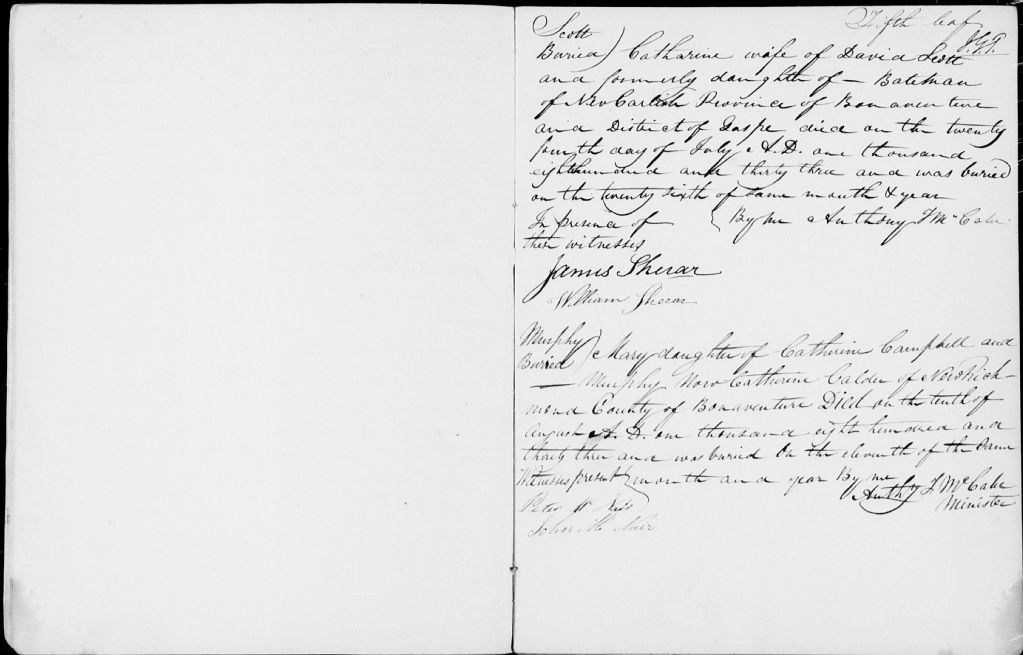 Fifth leaf
J.G.T.
Scott
Buried) Catharine wife of David Scott
and formerly daughter of — Bateman
of New Carlisle Province of Bonaventure
and District of Gaspe died on the twenty
fourth day of July A.D. one thousand
eight hundred and thirty three and was buried
on the twenty sixth of same month & year
In presence of { By me Anthony F McCabe
these witnesses
James Sherar
William Sherar
Murphy
Buried) Mary daughter of Catherine Campbell and
— Murphy Now Catherine Calder of New Rich-
mond County of Bonaventure Died on the tenth of
August A.D. one thousand eight hundred and
thirty three and was buried On the eleventh of the Same
Witnesses present } month and year By me
Anthy F McCabe
Minister
Peter
John Mc Nair